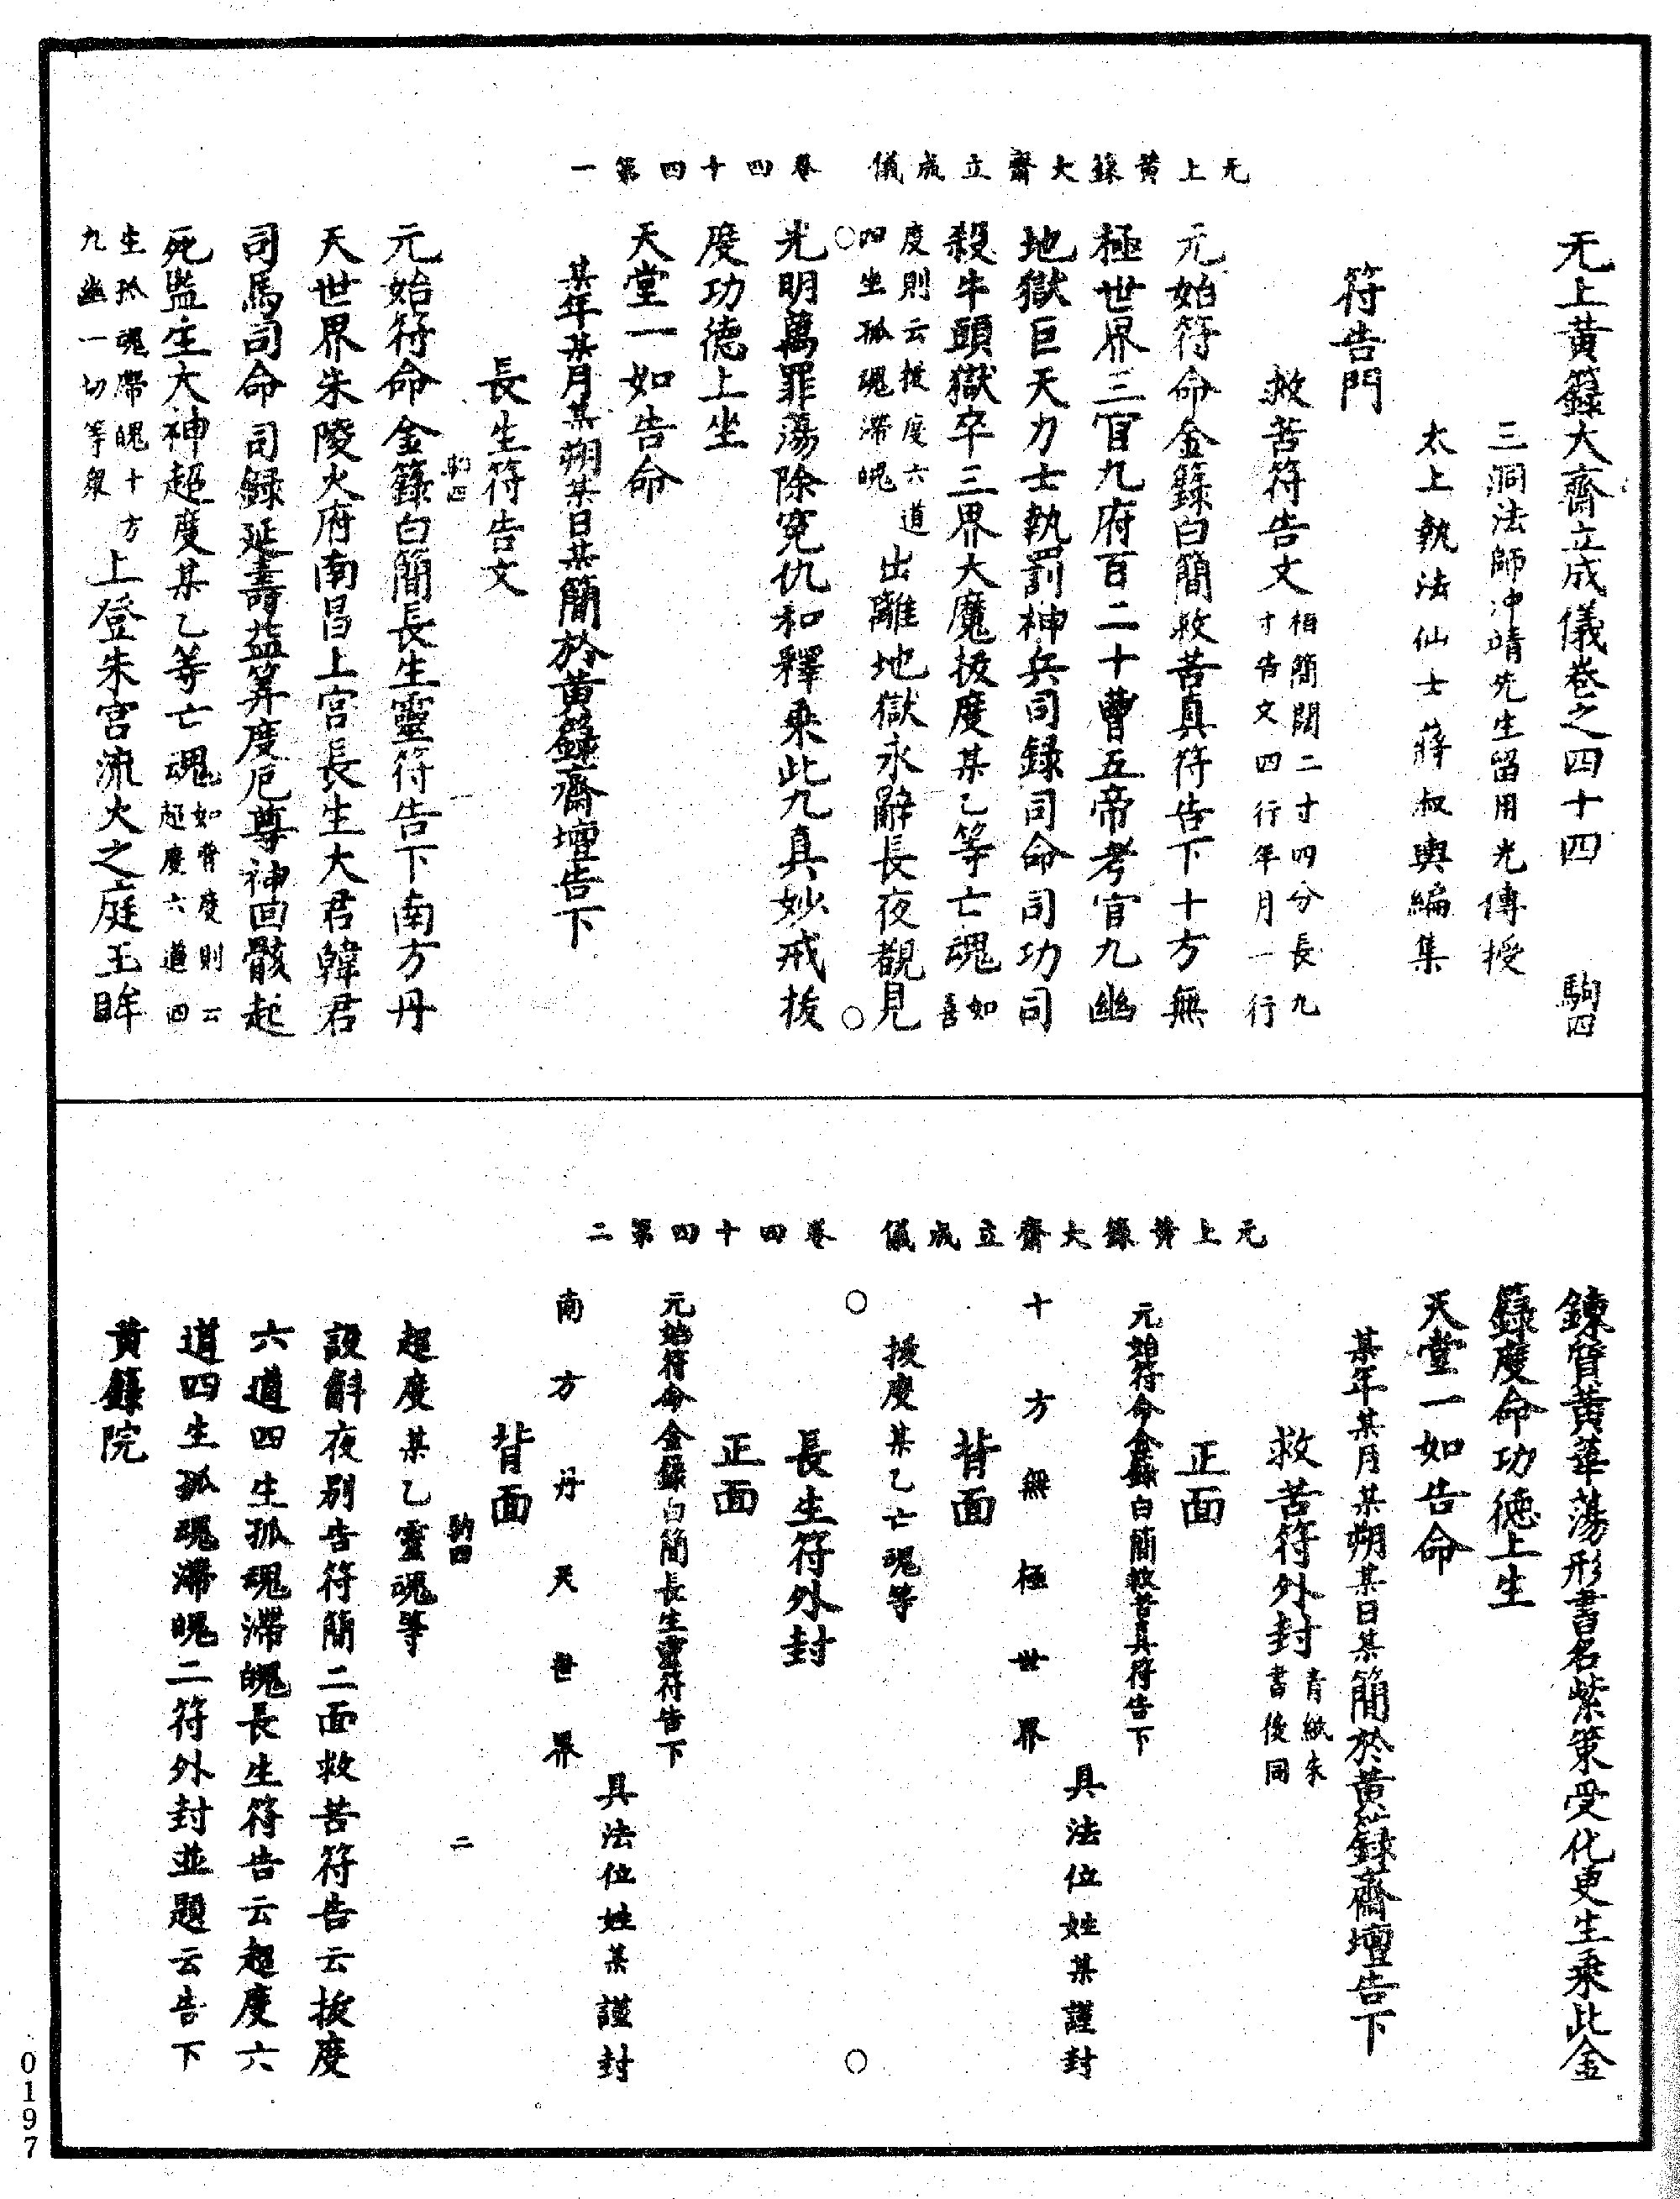 无上黃籙大齋立成儀　卷四十四第一
无上黃籙大齋立成儀卷之四十四　駒四
三洞法師冲靖先生留用光傳授
太上執法仙士蔣叔輿編集
符告門
救苦符告文栢簡闊二寸四分長九寸告文四行年月一行
元始符命金籙白簡救苦真符告下十方無
極世界三官九府百二十曹五帝考官九幽
地獄巨天力士執罰神兵司録司命司功司
殺牛頭獄卒三界大魔拔度某乙等亡魂如普
度則云拔度六道四生孤魂滯魄出離地獄永辭長夜覩見
光明萬罪蕩除冤仇和釋乘此九真妙戒拔
度功德上坐
天堂一如告命
某年某月某朔某日某簡於黃籙齋壇告下
長生符告文
駒四　一
元始符命金籙白簡長生靈符告下南方丹
天世界朱陵火府南昌上宮長生大君韓君
司馬司命司録延壽益筭度厄尊神回骸起
死監生大神超度某乙等亡魂如普度則云超度六道四
生孤魂滯魄十方九幽一切等衆上登朱宮流火之庭玉眸
无上黃籙大齋立成儀　卷四十四第二
鍊質黃華蕩形書名紫策受化更生乘此金
籙度命功德上生
天堂一如告命
某年某月某朔某日某簡於黃籙齋壇告下
救苦符外封青紙朱書後同
正面
元始符命金籙白簡救苦真符告下
具法位姓某謹封
十方無極世界
背面
拔度某乙亡魂等
長生符外封
正面
元始符命金籙白簡長生靈符告下
具法位姓某謹封
南方丹天世界
背面
駒四　二
超度某乙靈魂等
設斛夜別告符簡二面救苦符告云拔度
六道四生孤魂滯魄長生符告云超度六
道四生孤魂滯魄二符外封並題云告下
黃籙院
0197